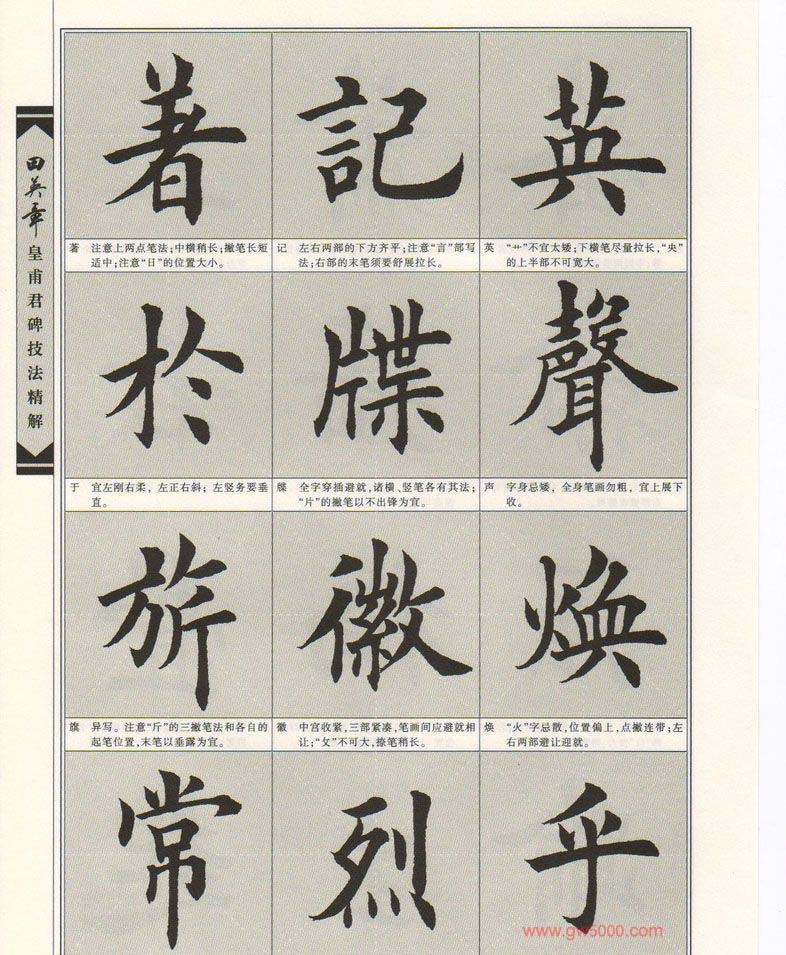 田英章
皇甫君碑技法精解
著 記 英
著 注意上两点笔法;中横稍长;撇笔长短
适中;注意“日”的位置大小。
记 左右两部的下方齐平;注意“言”部写
法;右部的末笔须要舒展拉长。
英 “艹”不宜太矮;下横笔尽量拉长,“央”
的上半部不可宽大。
於 牒 聲
于 宜左刚右柔,左正右斜;左竖务要垂
直。
牒 全字穿插避就,诸横、竖笔各有其法;
“片”的撇笔以不出锋为宜。
声 字身忌矮,全身笔画勿粗,宜上展下
收。
旂 徽 焕
旗 异写。注意“斤”的三撇笔法和各自的
起笔位置,末笔以垂露为宜。
徽 中宫收紧,三部紧凑,笔画间应避就相
让;“攵”不可大,捺笔稍长。
焕 “火”字忌散,位置偏上,点撇连带;左
右两部避让迎就。
常 烈 乎
www.gw5000.com